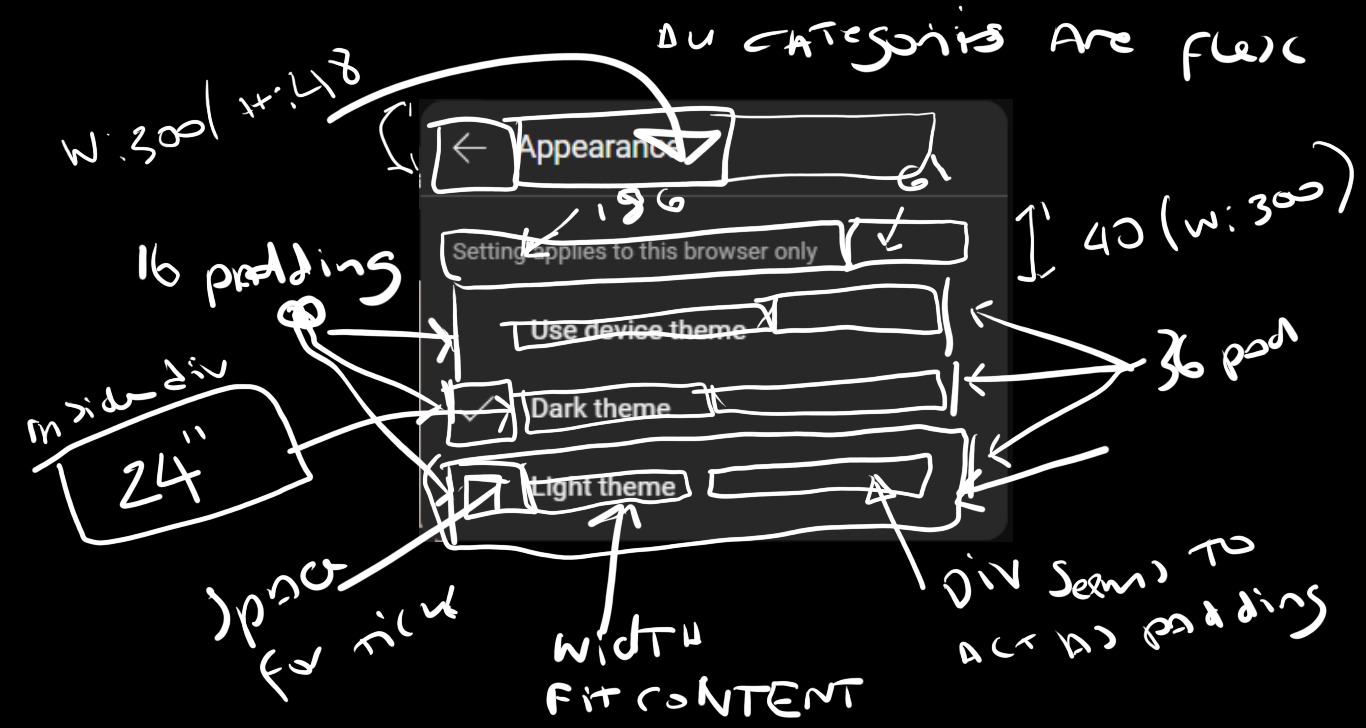 All categories are flex
W:300 H:48
Appearance
196
61
Setting applies to this browser only
40 (W:300)
16 padding
Use device theme
36 pad
inside div
24"
Dark theme
Light theme
Space
for tick
Width
Fit CONTENT
Div seems to
act as padding